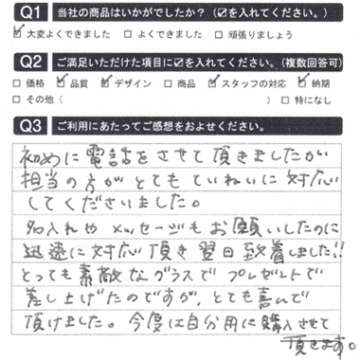 Q1 当社の商品はいかがでしたか？（☑を入れてください。）
☑大変よくできました □よくできました □頑張りましょう
Q2 ご満足いただけた項目に☑を入れてください。（複数回答可）
□価格 ☑品質 ☑デザイン □商品 ☑スタッフの対応 ☑納期
□その他（ ） □特になし
Q3 ご利用にあたってご感想をおよせください。
初めに電話をさせて頂きましたが
担当の方がとてもていねいに対応
してくださいました。
名入れやメッセージもお願いしたのに
迅速に対応頂き翌日到着しました!!
とっても素敵なグラスでプレゼントで
差し上げたのですが、とても喜んで
頂けました。今度は自分用に購入させて
頂きます。